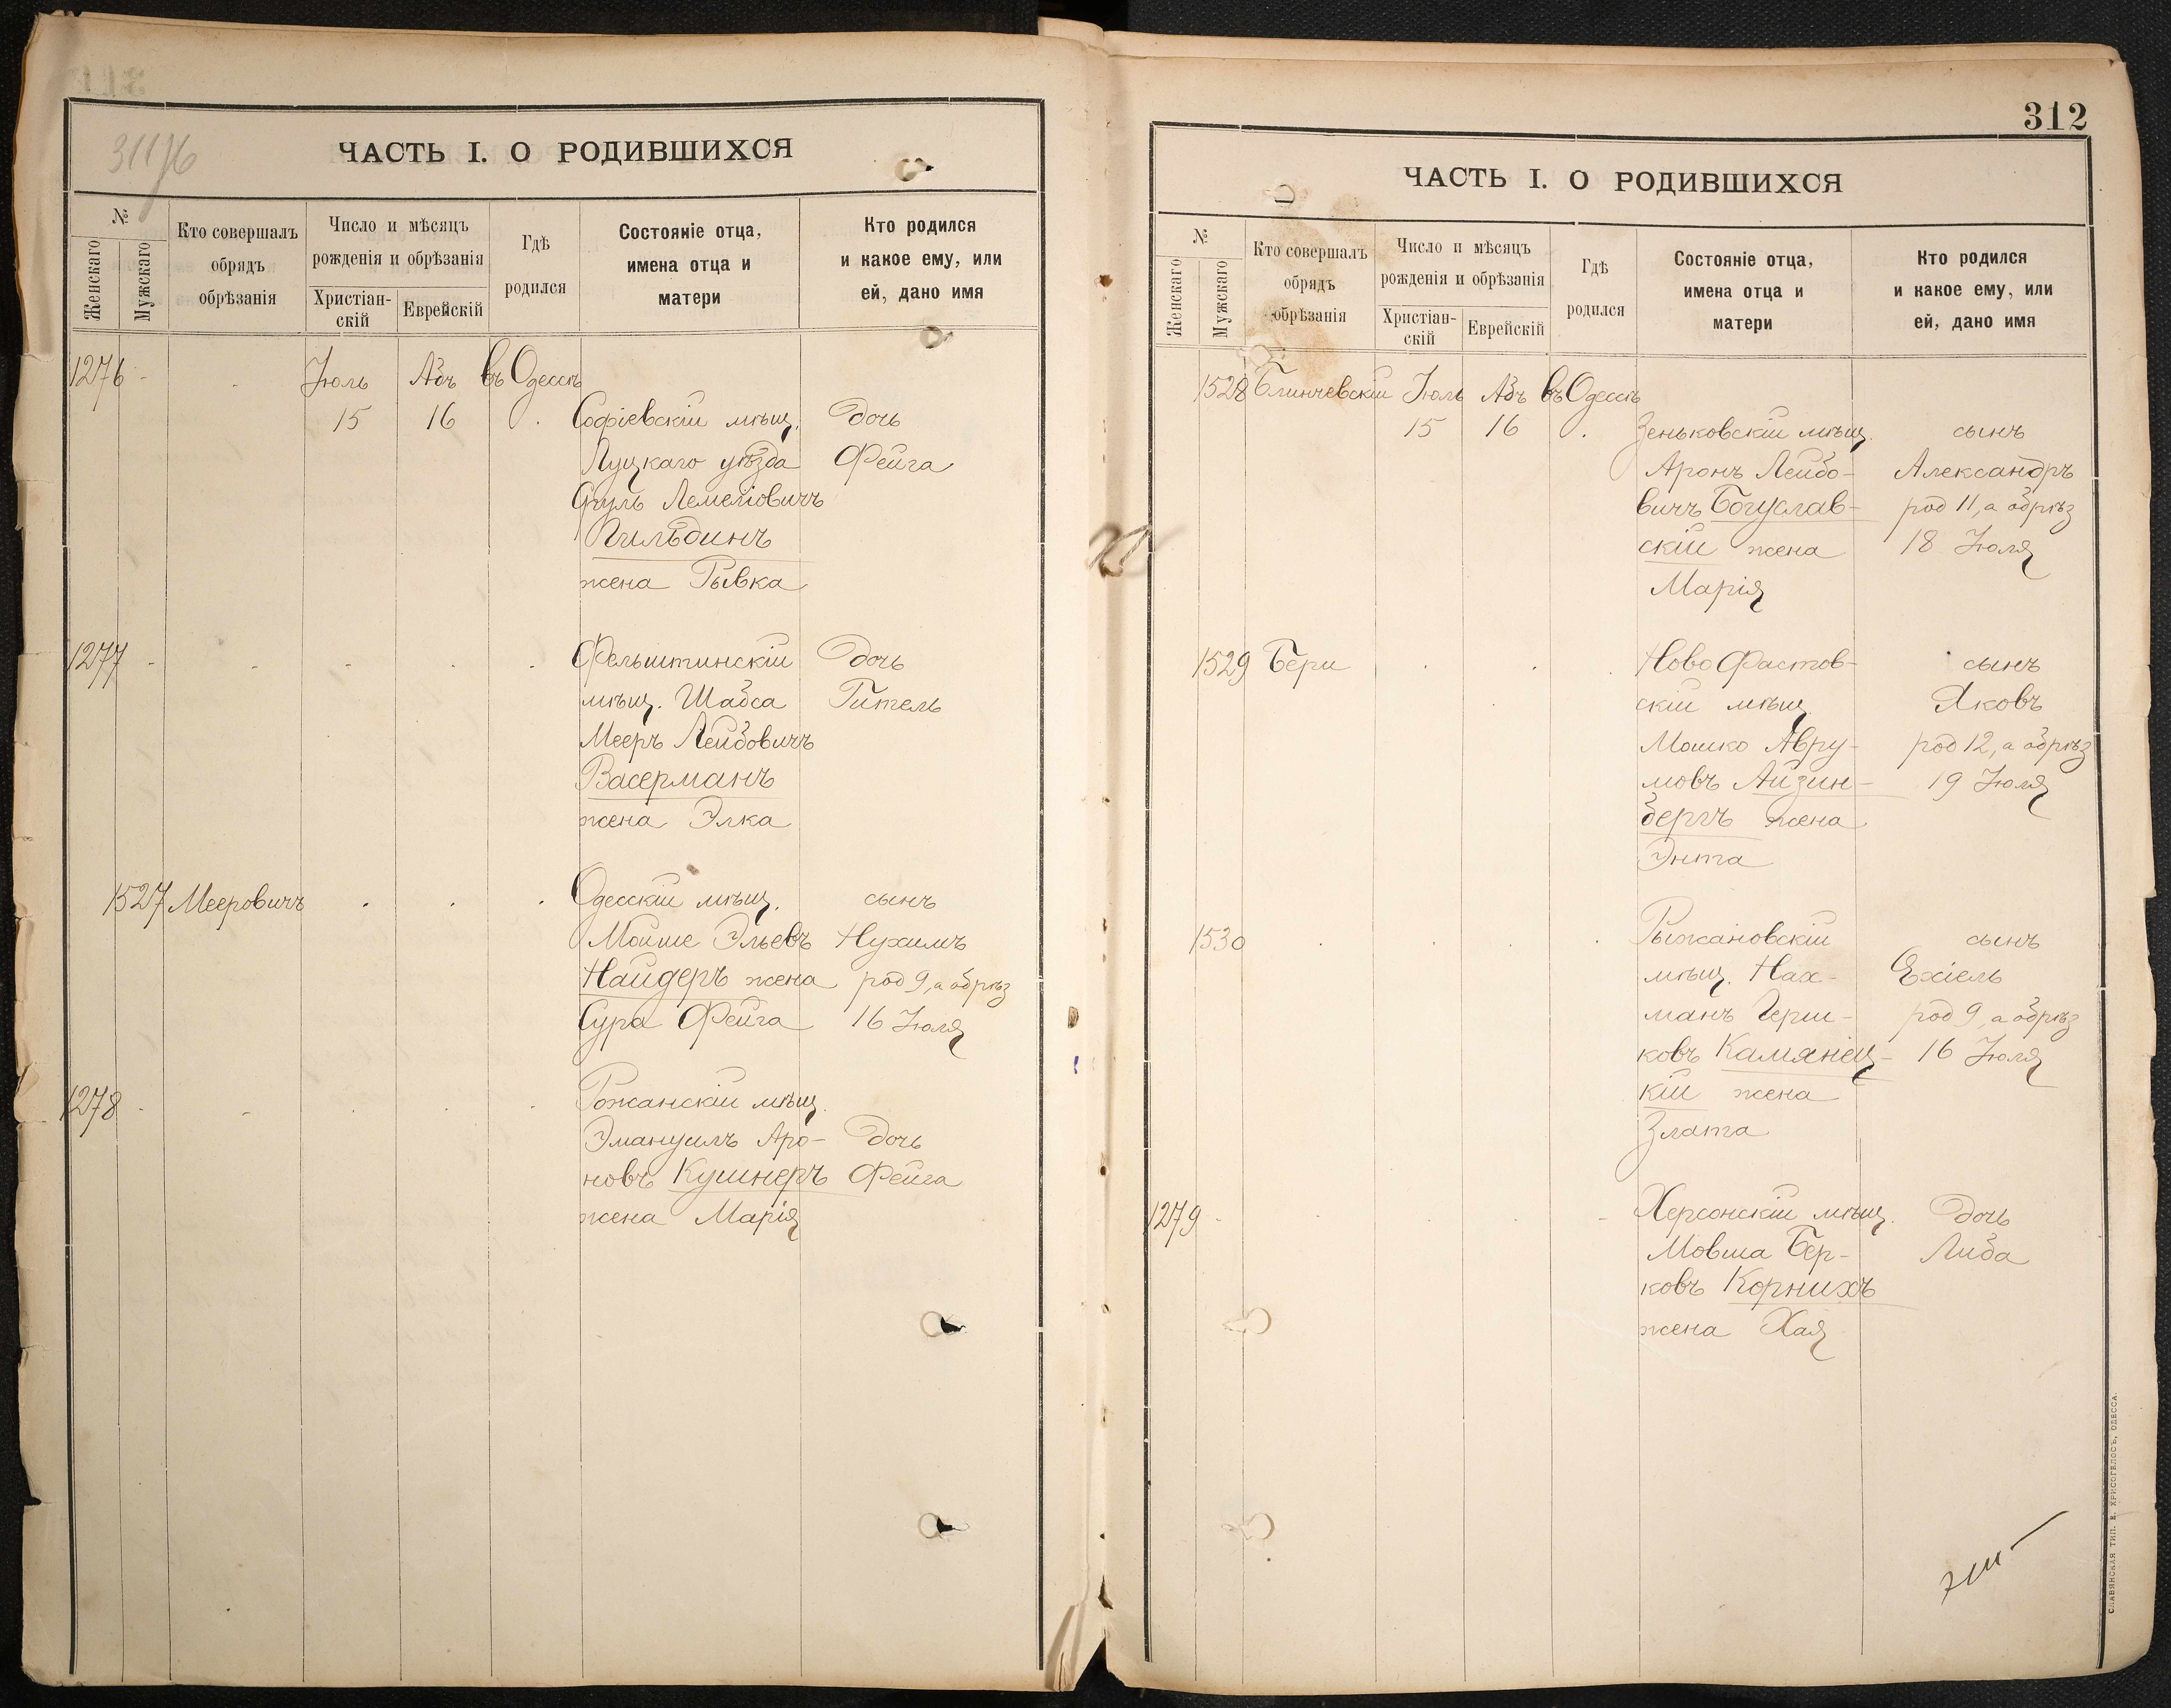 311/76
ЧАСТЬ I. О РОДИВШИХСЯ
№
Женскаго
Мужскаго
Кто совершалъ
обрядъ
обрѣзанія
Число и мѣсяцъ
рожденія и обрѣзанія
Христіан-
скій
Еврейскій
Гдѣ
родился
Состояніе отца,
имена отца и
матери
Кто родился
и какое ему, или
ей, дано имя
1276 - Іюль Абъ въ Одессѣ
15 16 Софіевскій мѣщ. дочь
Луцкаго уѣзда Фейга
Лемелiовичъ
Гильдинъ
жена Рывка
1277 - Фельштинскій дочь
мѣщ. Шабса Гитель
Мееръ Лейбовичъ
Васерманъ
жена Элка
1527 Мееровичъ Одесскій мѣщ. сынъ
Мойше Эльевъ Нухимъ
Найдеръ жена род 9, а обрѣз
Сура Фейга 16 Іюля
1278 - Рожанскій мѣщ.
Эмануилъ Аро- дочь
новъ Кушнеръ Фейга
жена Марія
312
ЧАСТЬ I. О РОДИВШИХСЯ
№
Женскаго
Мужскаго
Кто совершалъ
обрядъ
обрѣзанія
Число и мѣсяцъ
рожденія и обрѣзанія
Христіан-
скій
Еврейскій
Гдѣ
родился
Состояніе отца,
имена отца и
матери
Кто родился
и какое ему, или
ей, дано имя
1528 Блинчевскій Іюль Абъ въ Одессѣ
15 16 Зеньковскій мѣщ. сынъ
Аронъ Лейбо- Александръ
вичъ Богуслав- род 11, а обрѣз
скій жена 18 Іюля
Марія
1529 Бери Ново Фастов- сынъ
скій мѣщ. Яковъ
Мошко Авру- род 12, а обрѣз
мовъ Айзин- 19 Іюля
бергъ жена
Энта
1530 Рыжановскій сынъ
мѣщ. Нах- Ехіель
манъ Герш- род 9, а обрѣз
ковъ Камянец- 16 Іюля
кій жена
Злата
1279 - Херсонскій мѣщ. дочь
Мовша Бер- Либа
ковъ Корнихъ
жена Хая
СЛАВЯНСКАЯ ТИП. Е. ХРИСОГЕЛОСЪ, ОДЕССА.